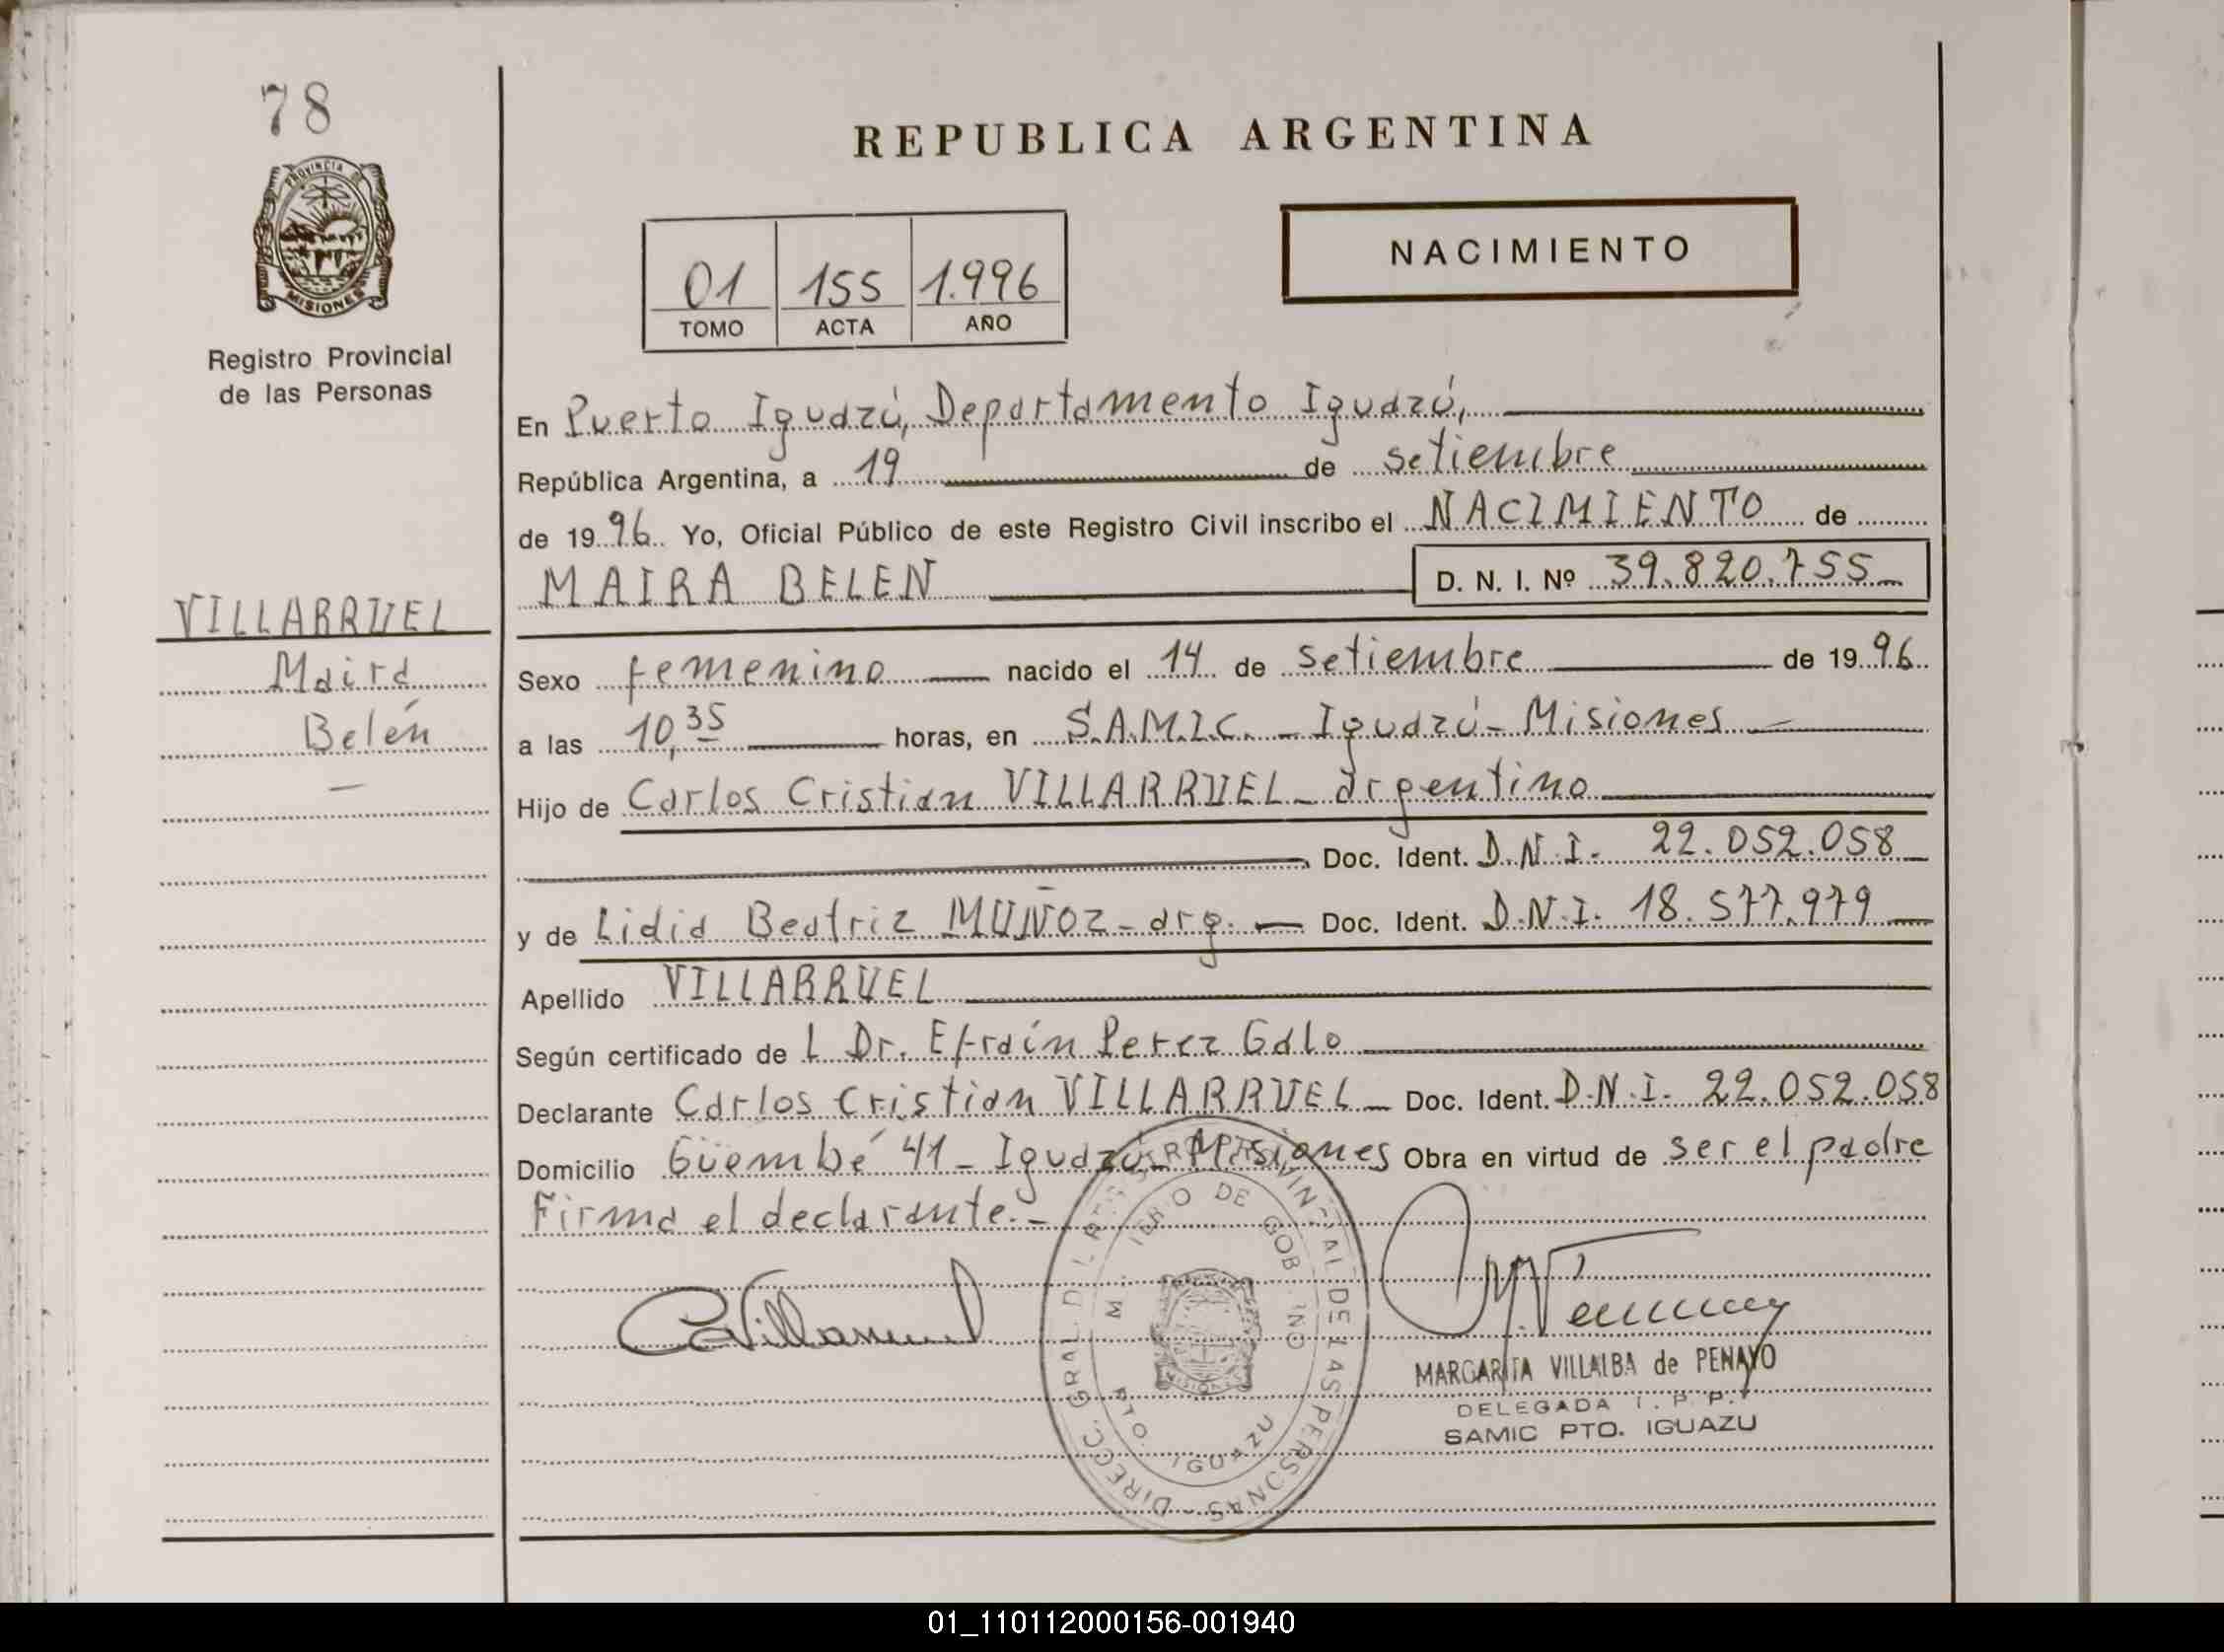 78
PROVINCIA DE
MISIONES
Registro Provincial
de las Personas
VILLARRUEL
Maira
Belén
REPUBLICA ARGENTINA
NACIMIENTO
01 155 1.996
TOMO ACTA AÑO
En Puerto Iguazú, Departamento Iguazú,
República Argentina, a 19 de setiembre
de 1996 Yo, Oficial Público de este Registro Civil inscribo el NACIMIENTO de
MAIRA BELEN D. N. I. Nº 39.820.755
Sexo femenino nacido el 14 de setiembre de 1996
a las 10,35 horas, en S.A.M.I.C. - Iguazú - Misiones
Hijo de Carlos Cristian VILLARRUEL - argentino
Doc. Ident. D.N.I. 22.052.058
y de Lidia Beatriz MUÑOZ - arg. - Doc. Ident. D.N.I. 18.577.979
Apellido VILLARRUEL
Según certificado de L Dr. Efraín Perez Galo
Declarante Carlos Cristian VILLARRUEL - Doc. Ident. D.N.I. 22.052.058
Domicilio Güembé 41 - Iguazú - Misiones Obra en virtud de ser el padre
Firma el declarante.-
CVillarruel
MARGARITA VILLALBA de PENAYO
DELEGADA I. P. P.
SAMIC PTO. IGUAZU
PTO. IGUAZU
01_110112000156-001940